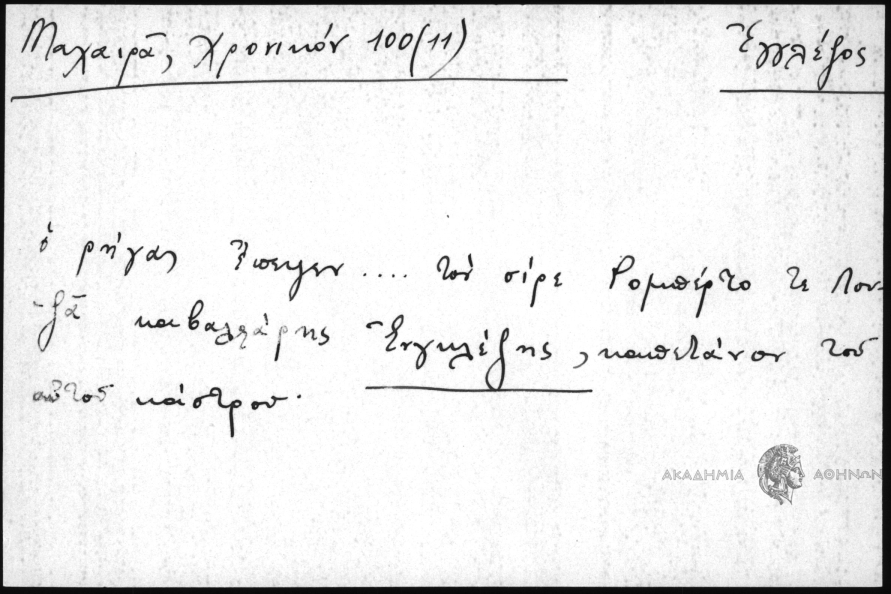 Μαχαιρᾶ, Χρονικόν 100(11)
Ἐγγλέζος
ὁ ρήγας ἔπεψεν .... τὸν σίρε Ρομπέρτο τε Λου-
ζᾶ καβαλλάρης Ἐνγκλέζης, καπετάνον τοῦ
αὐτοῦ κάστρου.
ΑΚΑΔΗΜΙΑ ΑΘΗΝΩΝ